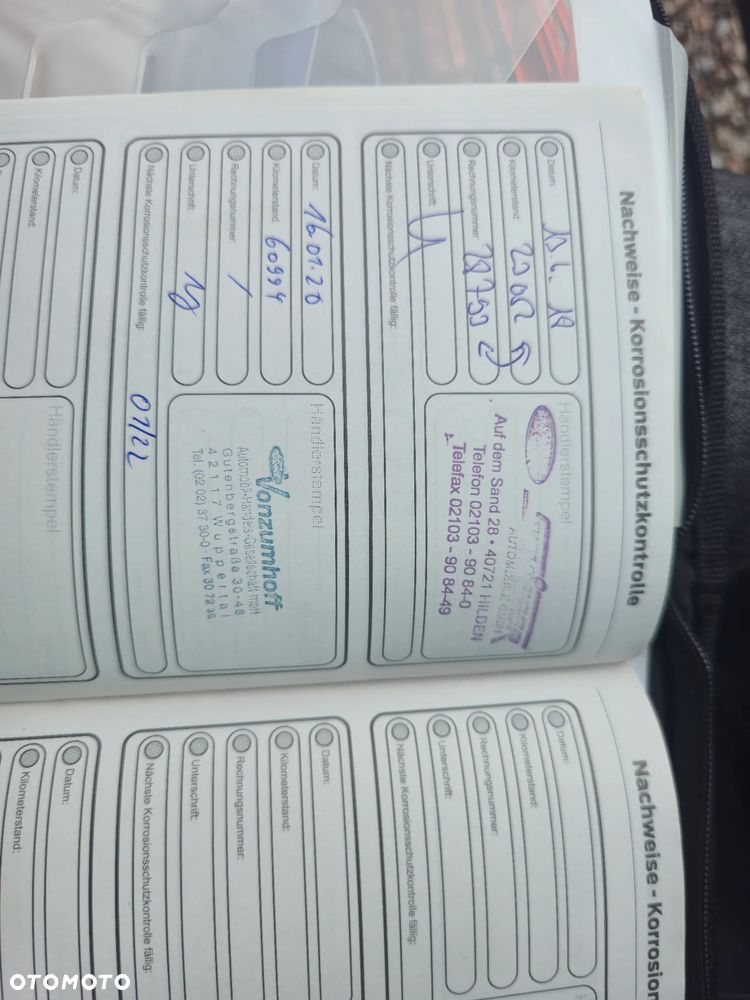 Nachweise - Korrosionsschutzkontrolle
Datum:
Kilometerstand:
Rechnungsnummer:
Unterschrift:
Nächste Korrosionsschutzkontrolle fällig:
Händlerstempel
AUTOMOBILE GmbH
Auf dem Sand 28 • 40721 HILDEN
Telefon 02103 - 90 84-0
Telefax 02103 - 90 84-49
Datum: 16.01.20
Kilometerstand: 60994
Rechnungsnummer: /
Unterschrift:
Nächste Korrosionsschutzkontrolle fällig: 01/22
Händlerstempel
Vonzumhoff
Automobil-Handels-Gesellschaft mbH
Gutenbergstraße 30-48
42117 Wuppertal
Tel. (02 02) 37 30-0 · Fax 30 72 36
Datum:
Kilometerstand:
Händlerstempel
Nachweise - Korrosion
Datum:
Kilometerstand:
Rechnungsnummer:
Unterschrift:
Nächste Korrosionsschutzkontrolle fällig:
Datum:
Kilometerstand:
Rechnungsnummer:
Unterschrift:
Nächste Korrosionsschutzkontrolle fällig:
Datum:
Kilometerstand:
OTOMOTO